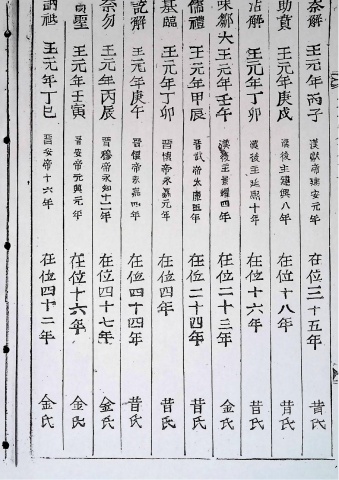 奈解 王元年丙子 漢獻帝建安元年 在位三十五年 昔氏
助賁 王元年庚戌 漢後主建興八年 在位十八年 昔氏
沾解 王元年丁卯 漢後主延熙十年 在位十六年 昔氏
味鄒大 王元年壬午 漢後主景耀四年 在位二十三年 金氏
儒禮 王元年甲辰 晉武帝太康五年 在位二十四年 昔氏
基臨 王元年丁卯 晉懷帝永嘉元年 在位四年 昔氏
訖解 王元年庚午 晉懷帝永嘉四年 在位四十四年 昔氏
奈勿 王元年丙辰 晉穆帝永和十二年 在位四十七年 金氏
聖 王元年壬寅 晉安帝元興元年 在位十六年 金氏
訥祗 王元年丁巳 晉安帝十六年 在位四十二年 金氏